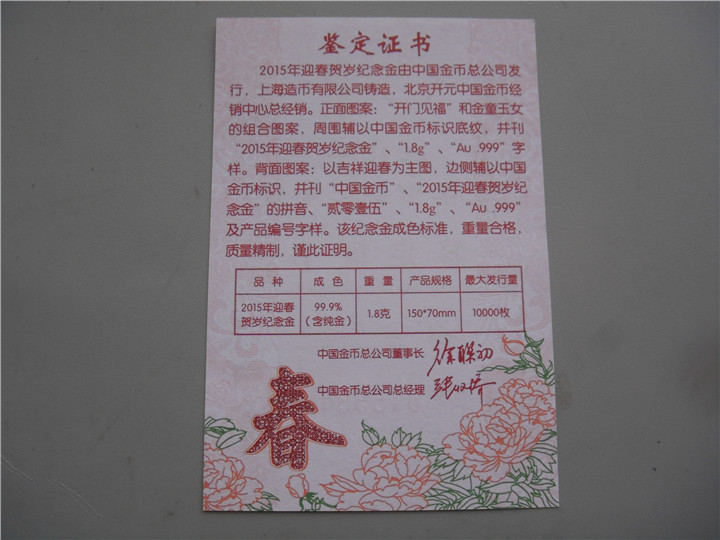 鉴定证书
2015年迎春贺岁纪念金由中国金币总公司发
行，上海造币有限公司铸造，北京开元中国金币经
销中心总经销。正面图案：“开门见福”和金童玉女
的组合图案，周围辅以中国金币标识底纹，并刊
“2015年迎春贺岁纪念金”、“1.8g”、“Au .999”字
样。背面图案：以吉祥迎春为主图，边侧辅以中国
金币标识，并刊“中国金币”、“2015年迎春贺岁纪
念金”的拼音、“贰零壹伍”、“1.8g”、“Au .999”
及产品编号字样。该纪念金成色标准，重量合格，
质量精制，谨此证明。
品 种 成 色 重 量 产品规格 最大发行量
2015年迎春贺岁纪念金 99.9%（含纯金） 1.8克 150*70mm 10000枚
中国金币总公司董事长 徐联初
中国金币总公司总经理
春